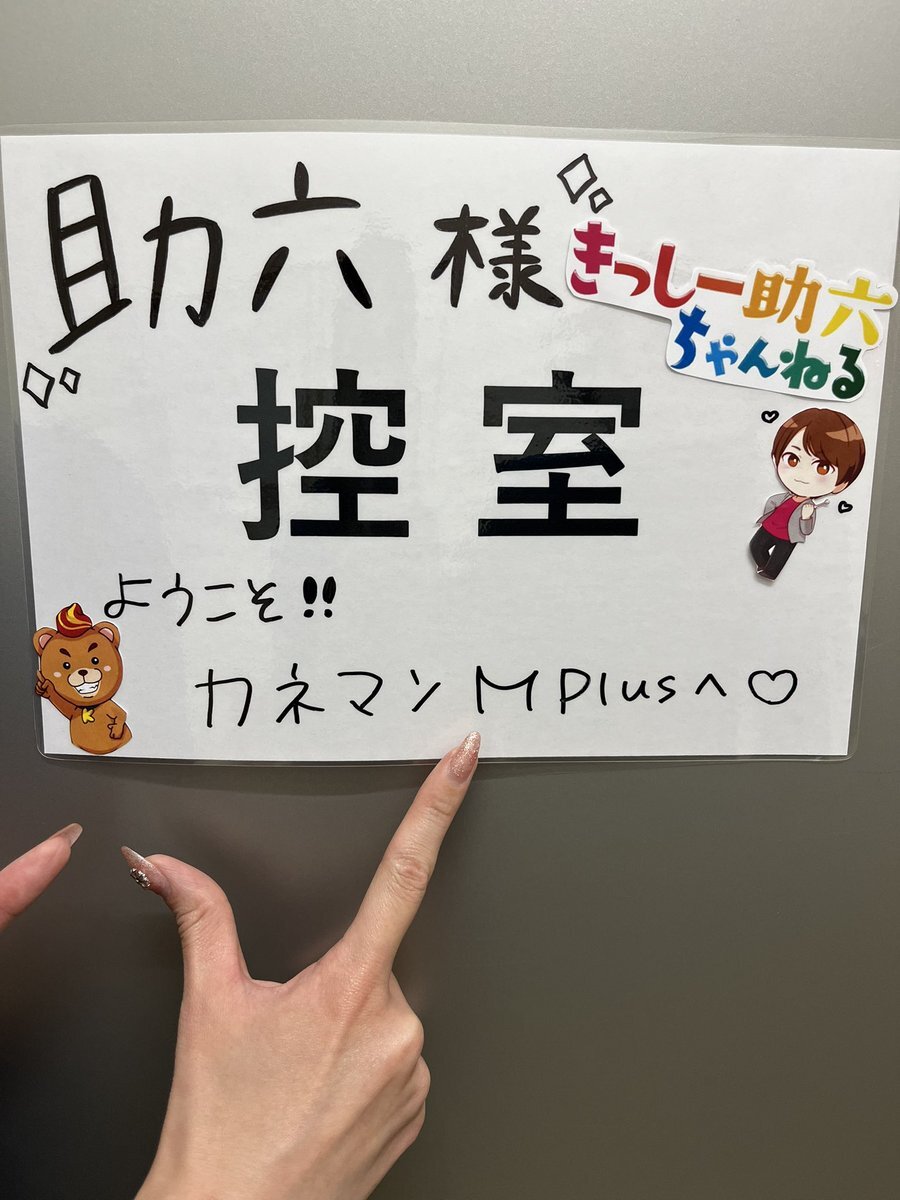 助六 様
きっしー助六
ちゃんねる
控室
ようこそ!!
カネマンM Plusへ♡